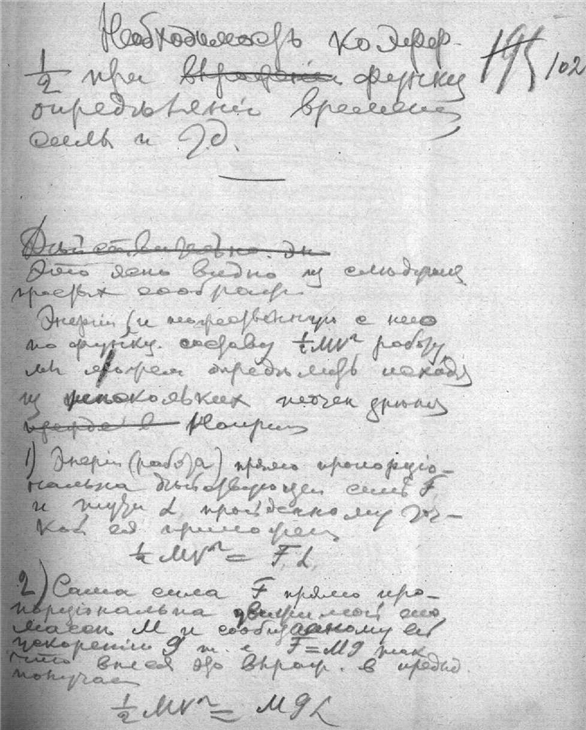 Необходимость коэффиц.
1/2 при функц
опредѣленіи времени
силы и т.д.
195 102
Это ясно видно из слѣдующ
простых соображ.
Энергію и тождественную с нею
по функц. составу ½MV² работу
мы можем опредѣлить исходя
из нѣскольких точек зрѣнія
Наприм
1) Энергія (работа) прямо пропорціо-
нальна дѣйствующей силѣ F,
и пути L, пройденному точ-
кой ея прилож
½ MV² = F. L.
2) Сама сила F прямо про-
порціональна движимой ею
массѣ M и сообщаемому ей
ускоренію g т. е. F = Mg так
что внеся это выраж. в предыд.
получаем
½ MV² = MgL